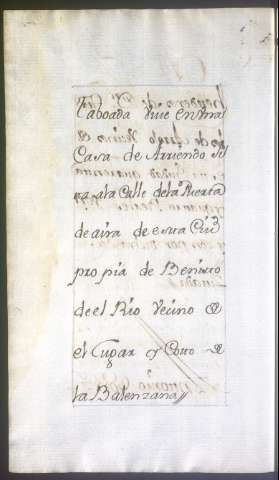 Taboada Vive en Vna
Casa de Arriendo si
ta a la Calle de la Puerta
de aira de esta Ciud
propia de Benito
de el Rio Vecino de
el Lugar y Coto de
la Balenzana